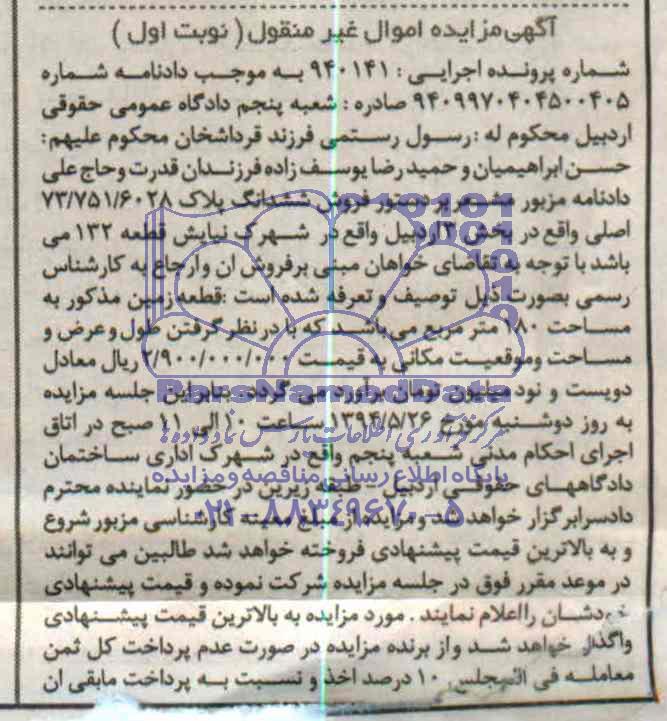 آگهی مزایده اموال غیر منقول ( نوبت اول )
شماره پرونده اجرایی : ۹۴۰۱۴۱ به موجب دادنامه شماره
۹۴۰۹۹۷۰۴۰۴۵۰۰۴۰۵ صادره : شعبه پنجم دادگاه عمومی حقوقی
اردبیل محکوم له : رسول رستمی فرزند قرداشخان محکوم علیهم :
حسن ابراهیمیان و حمید رضا یوسف زاده فرزندان قدرت و حاج علی
دادنامه مزبور مشعر بر دستور فروش ششدانگ پلاک ۷۳/۷۵۱/۶۰۲۸
اصلی واقع در بخش ۳ اردبیل واقع در شهرک نیایش قطعه ۱۳۲ می
باشد با توجه به تقاضای خواهان مبنی برفروش ان وارجاع به کارشناس
رسمی بصورت ذیل توصیف و تعرفه شده است : قطعه زمین مذکور به
مساحت ۱۸۰ متر مربع می باشد که با در نظر گرفتن طول و عرض و
مساحت وموقعیت مکانی به قیمت ۲/۹۰۰/۰۰۰/۰۰۰ ریال معادل
دویست و نود میلیون تومان برآورد می گردد. بنابراین جلسه مزایده
به روز دوشنبه مورخ ۱۳۹۴/۵/۲۶ ساعت ۱۰ الی ۱۱ صبح در اتاق
اجرای احکام مدنی شعبه پنجم واقع در شهرک اداری ساختمان
دادگاههای حقوقی اردبیل طبقه زیرین در حضور نماینده محترم
دادسرا برگزار خواهد شد و مزایده از مبلغ کارشناسی مزبور شروع
و به بالاترین قیمت پیشنهادی فروخته خواهد شد طالبین می توانند
در موعد مقرر فوق در جلسه مزایده شرکت نموده و قیمت پیشنهادی
خودشان را اعلام نمایند . مورد مزایده به بالاترین قیمت پیشنهادی
واگذار خواهد شد و از برنده مزایده در صورت عدم پرداخت کل ثمن
معامله فی المجلس ۱۰ درصد اخذ و نسبت به پرداخت مابقی ان
ParsNamadData
مرکز فرآوری اطلاعات پارس نماد داده ها
پایگاه اطلاع رسانی مناقصه و مزایده
۰۲۱-۸۸۳۴۹۶۷۰-۵